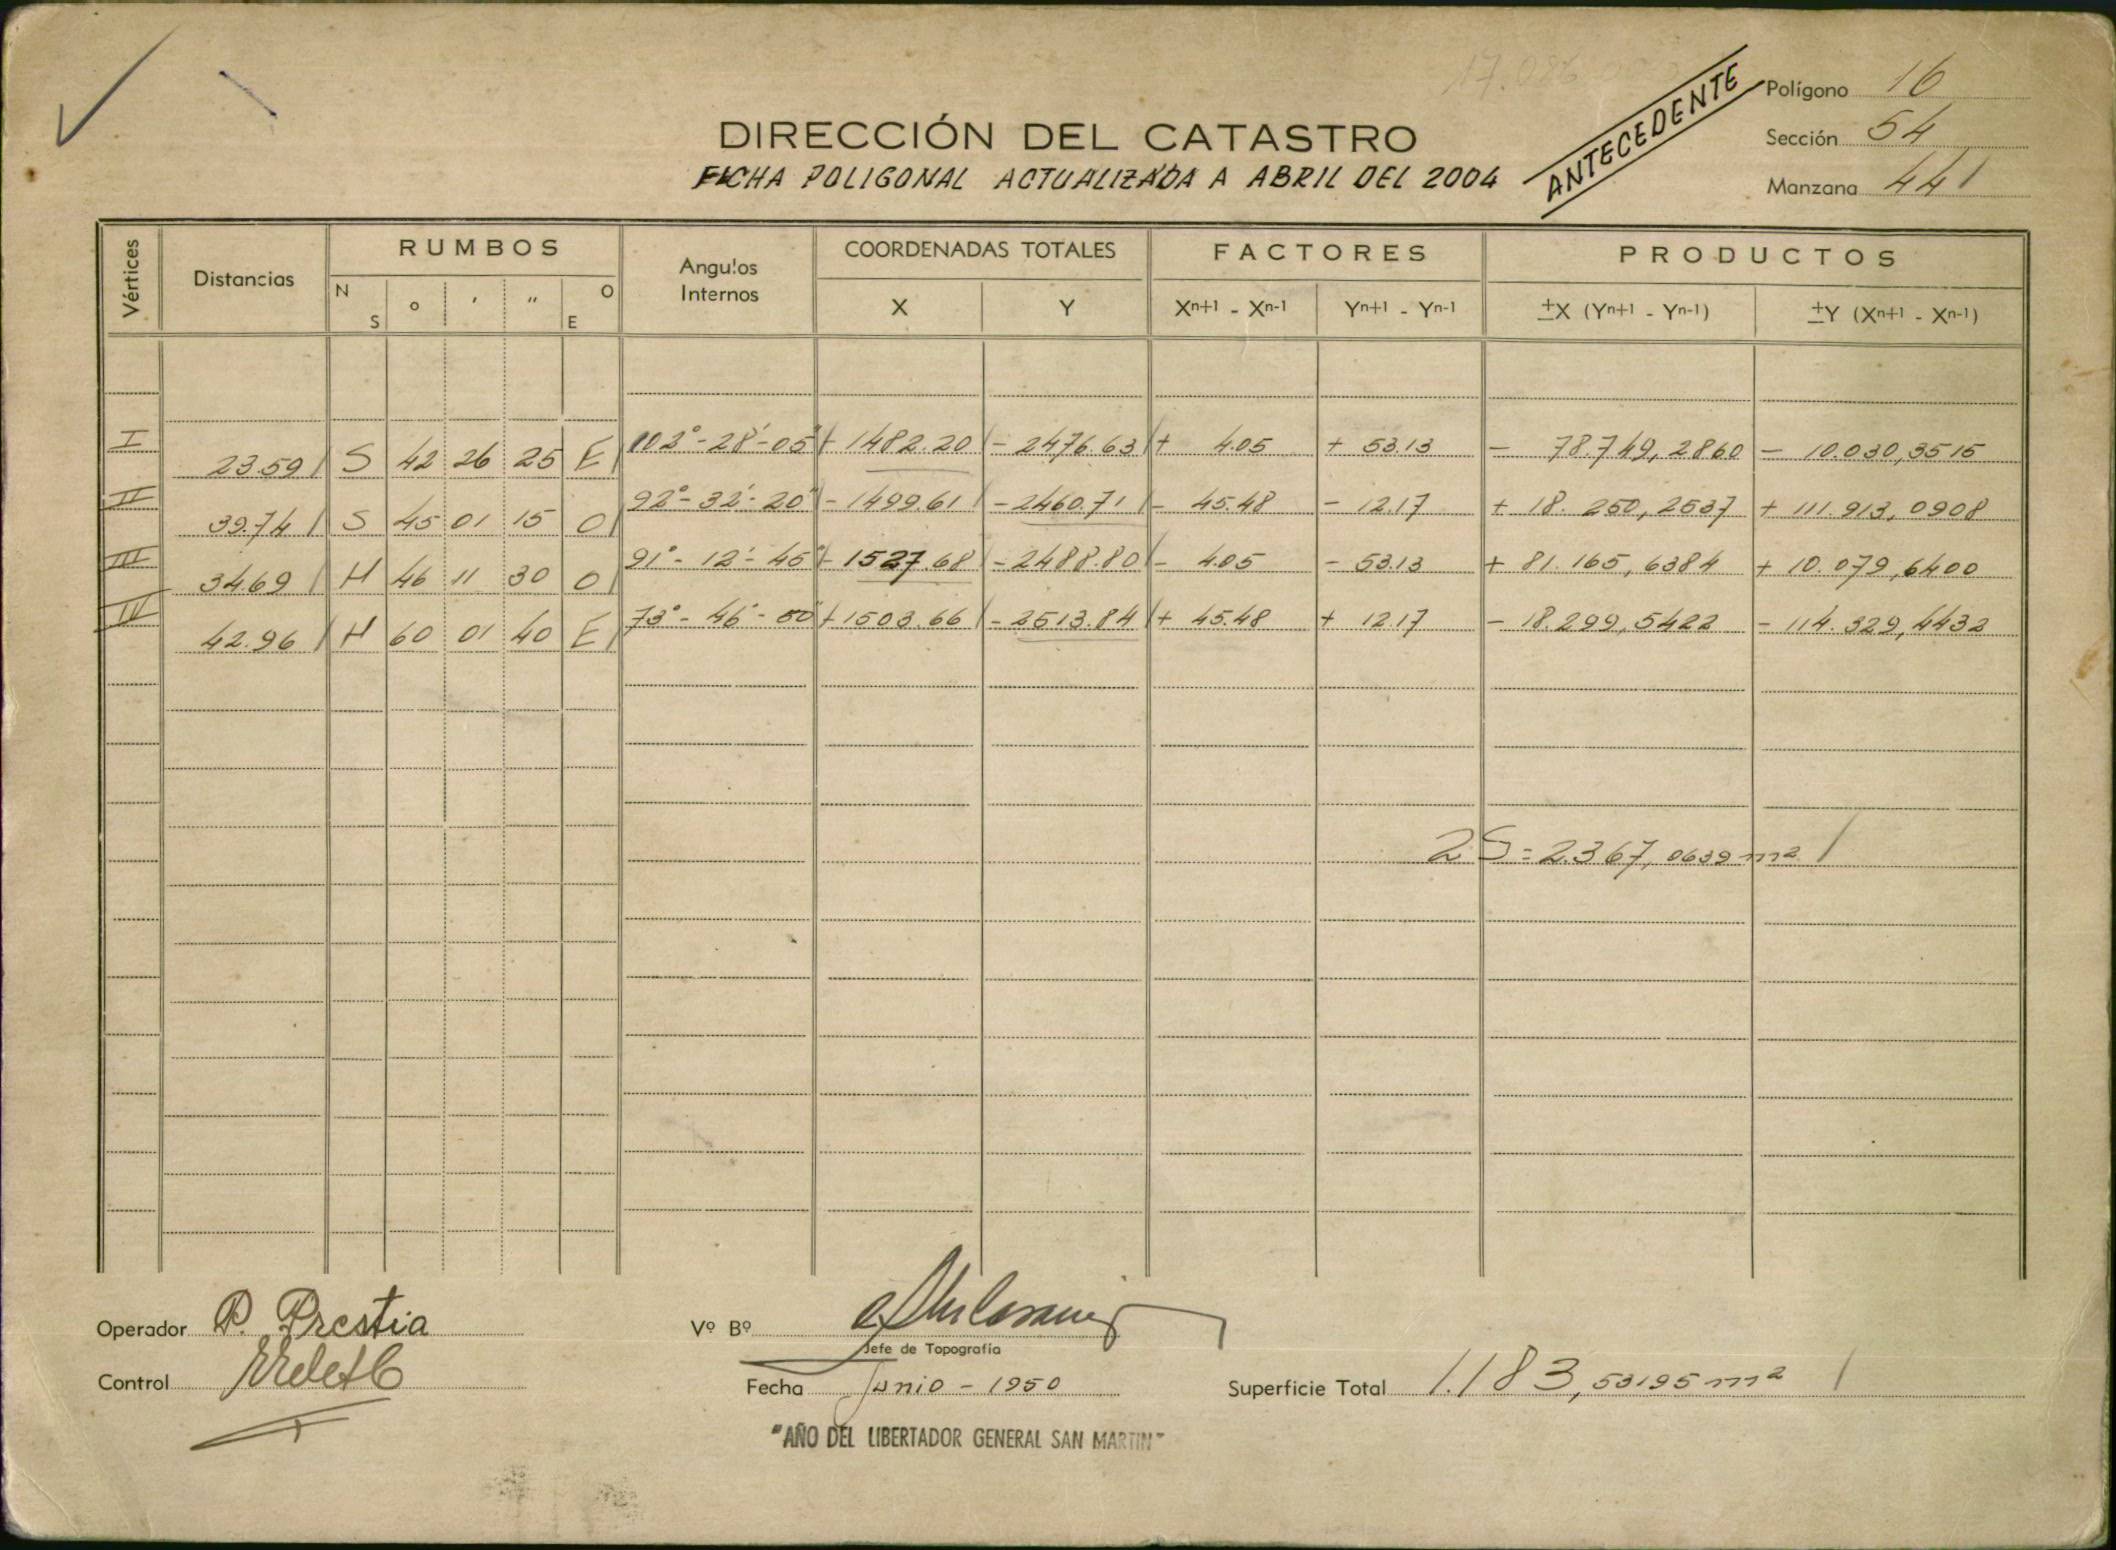 17.086
Polígono 16
ANTECEDENTE
DIRECCIÓN DEL CATASTRO
Sección 54
FICHA POLIGONAL ACTUALIZADA A ABRIL DEL 2004
Manzana 441
Vértices Distancias RUMBOS Angulos Internos COORDENADAS TOTALES FACTORES PRODUCTOS
N S ° ' " O E X Y Xn+1 - Xn-1 Yn+1 - Yn-1 ±X (Yn+1 - Yn-1) ±Y (Xn+1 - Xn-1)
I 102°-28'-05" - 1482.20 - 2476.63 + 4.05 + 53.13 - 78.749,2860 - 10.030,3515
23.59 S 42 26 25 E
II 92°-32'-20" - 1499.61 - 2460.71 - 45.48 - 12.17 + 18.250,2537 + 111.913,0908
39.74 S 45 01 15 O
III 91°-12'-45" - 1527.68 - 2488.80 - 4.05 - 53.13 + 81.165,6384 + 10.079,6400
34.69 N 46 11 30 O
IV 73°-46'-50" - 1503.66 - 2513.84 + 45.48 + 12.17 - 18.299,5422 - 114.329,4432
42.96 N 60 01 40 E
2S = 2.367,0639 m2
Operador P. Prestia
Vº Bº
Jefe de Topografía
Control
Fecha Junio - 1950
Superficie Total 1.183,53195 m2
"AÑO DEL LIBERTADOR GENERAL SAN MARTIN"